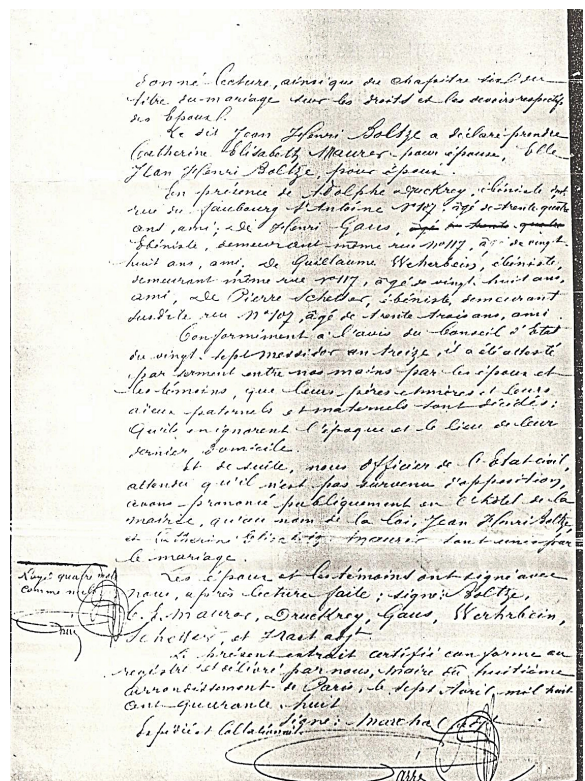 donné lecture, ainsi que du chapitre six du
titre du mariage sur les droits et les devoirs respectifs
des Epoux.
Le dit Jean Henri Boltze a déclaré prendre
Catherine Elisabeth Maurer pour épouse, Elle
Jean Henri Boltze, pour époux.
En présence de Adolphe Druckrey, ébéniste
rue du faubourg St Antoine No 107, âgé de trente quatre
ans, ami; De Henri Gaus, âgé de trente quatre
Ebéniste, demeurant même rue No 117, âgé de vingt
huit ans, ami, De Guillaume Wehrbein, ébéniste,
demeurant même rue No 117, âgé de vingt huit ans,
ami, De Pierre Scheffer, ébéniste, demeurant
susdite rue No 107, âgé de trente trois ans, ami.
Conformément à l'avis du Conseil d'Etat
du vingt sept Messidor an treize, il a été attesté
par serment entre nos mains par les époux et
les témoins, que leurs pères et mères et leurs
aïeux paternels et maternels sont décédés;
Qu'ils en ignorent l'époque et le lieu de leur
dernier domicile.
Et de suite, nous Officier de l'Etat civil,
attendu qu'il n'est pas survenu d'opposition,
avons prononcé publiquement en l'hôtel de la
mairie, qu'au nom de la loi, Jean Henri Boltze,
et Catherine Elisabeth Maurer sont unis par
le mariage.
Les époux et les témoins ont signé avec
nous, après lecture faite; signé: Boltze,
C. E. Maurer, Druckrey, Gaus, Werhrbein,
Scheffer, et
Rayé quatre mots
comme nuls
Le présent extrait certifié conforme au
registre et délivré par nous, Maire du huitième
arrondissement de Paris, le sept Avril, mil huit
cent quarante huit
signé: Marchal
Expédié et Collationné